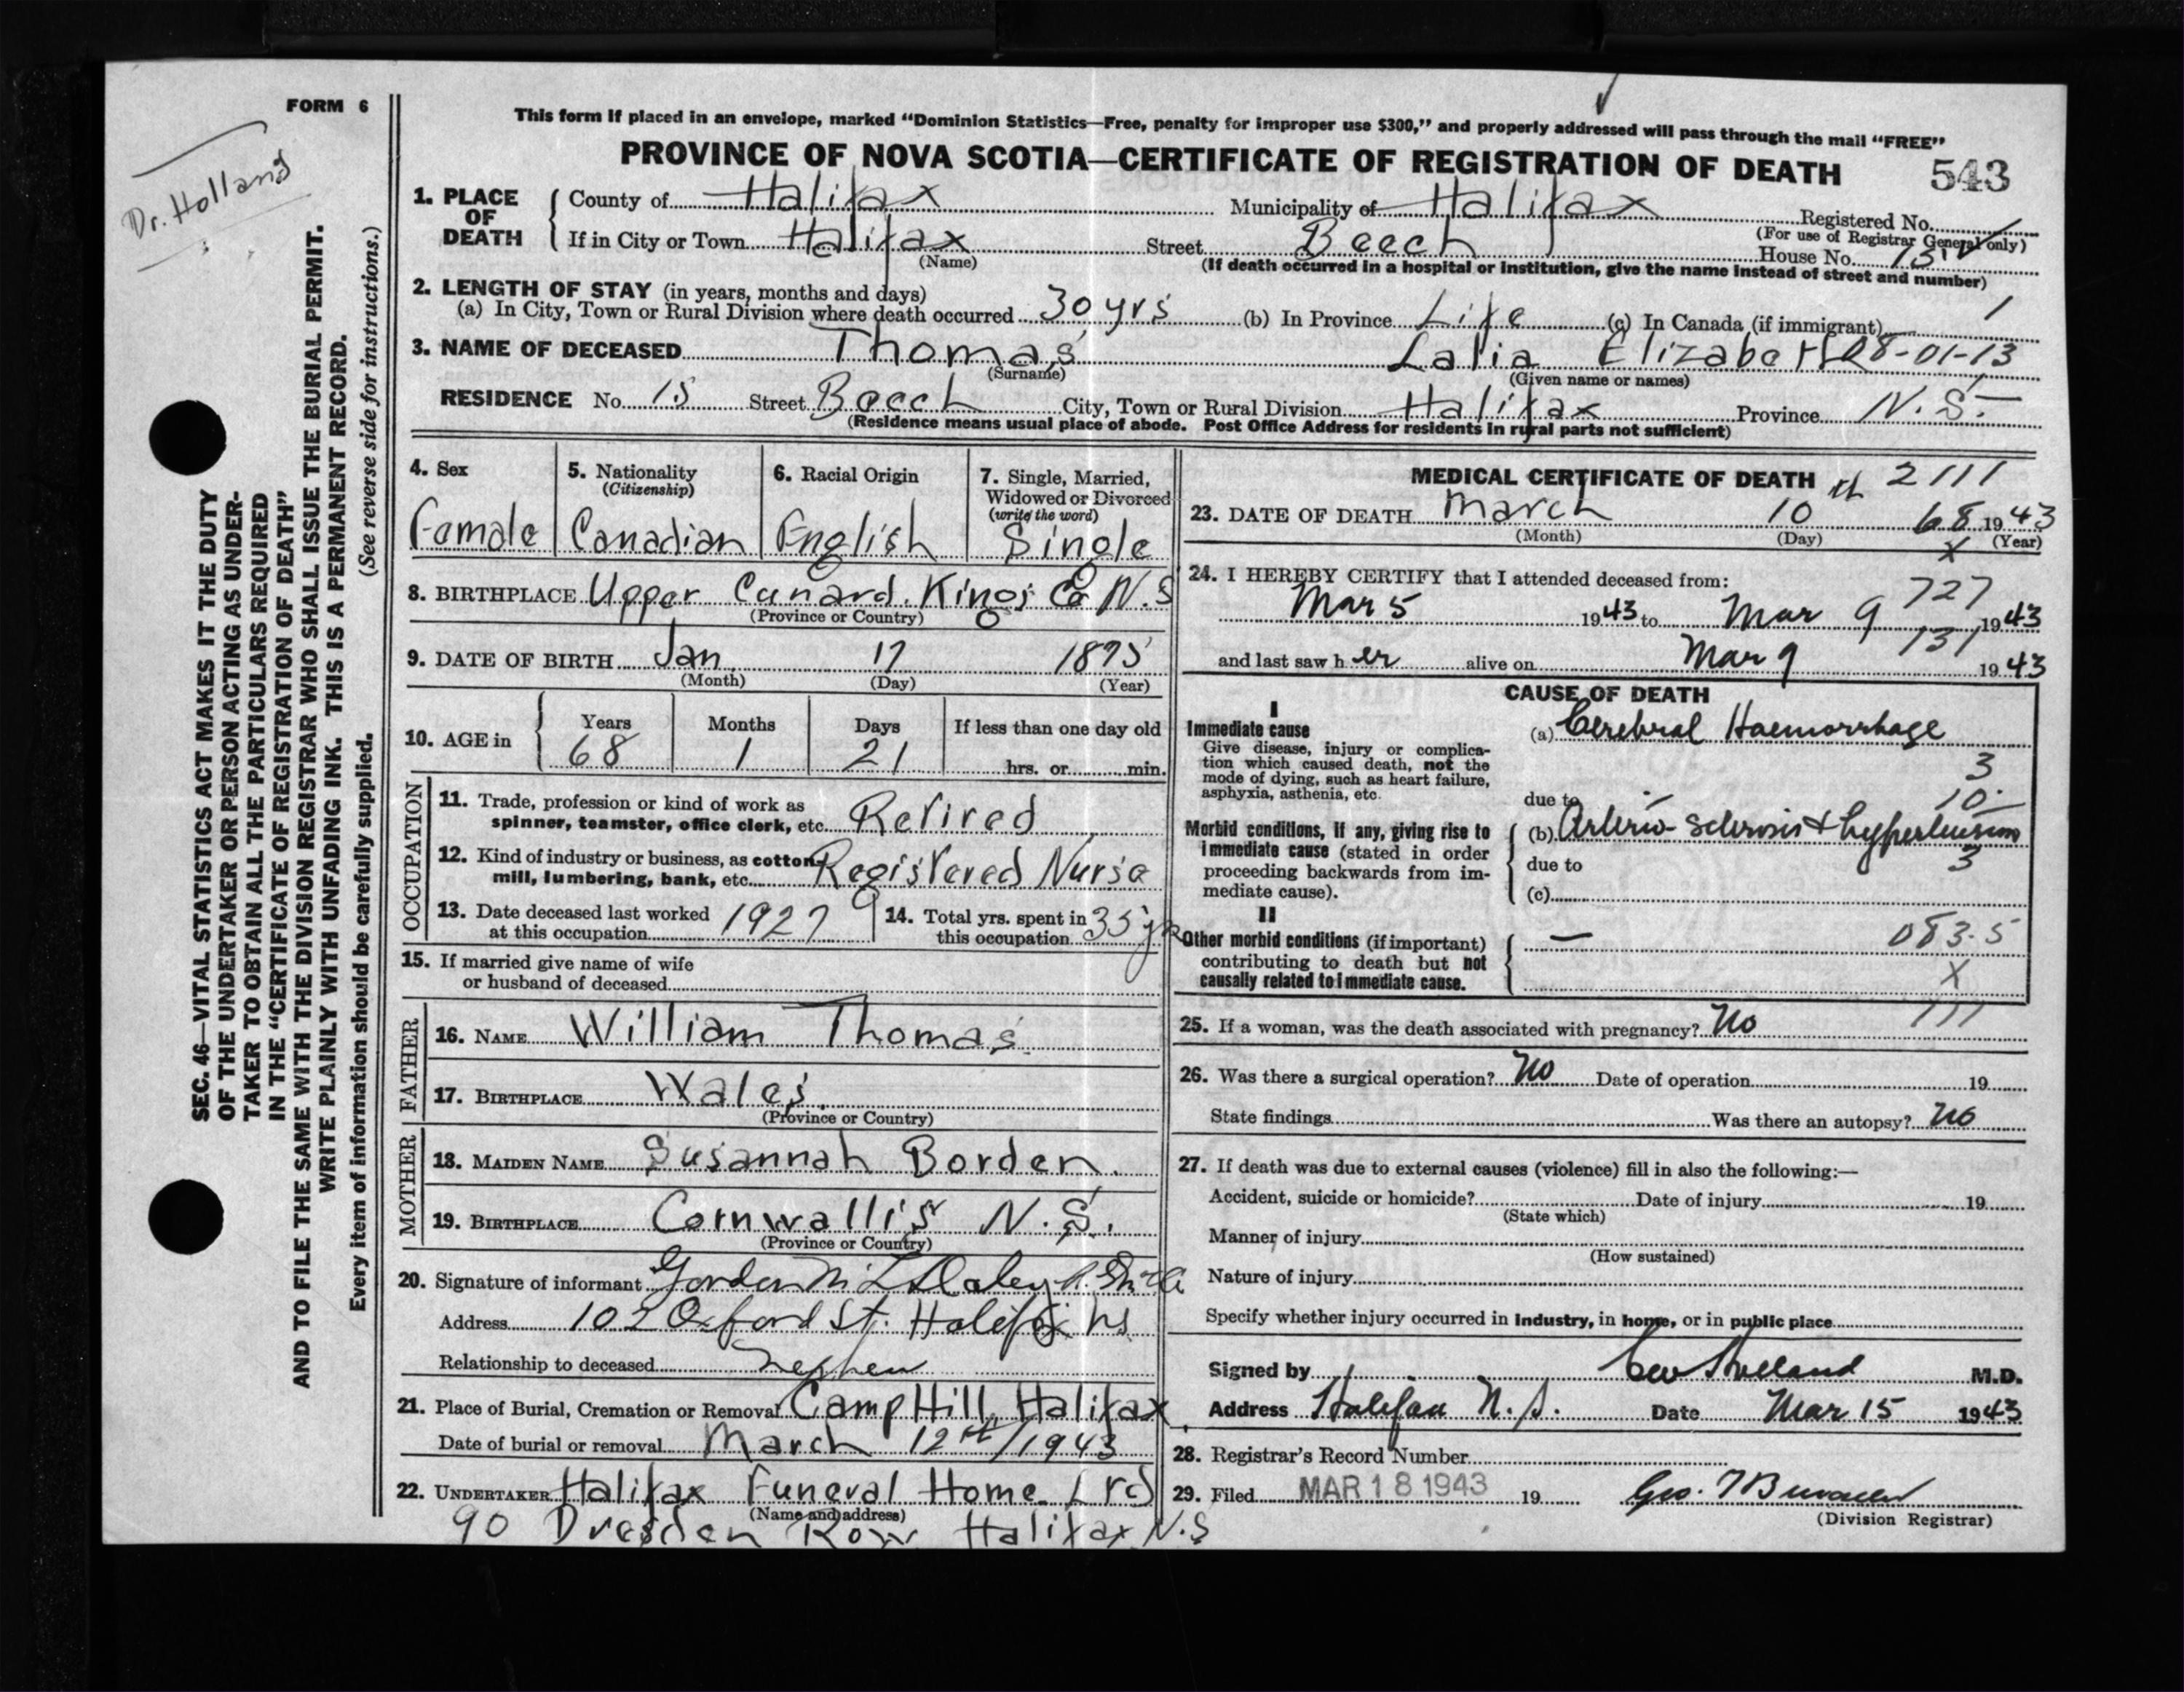 FORM 6
Dr. Holland
SEC. 46—VITAL STATISTICS ACT MAKES IT THE DUTY
OF THE UNDERTAKER OR PERSON ACTING AS UNDER-
TAKER TO OBTAIN ALL THE PARTICULARS REQUIRED
IN THE "CERTIFICATE OF REGISTRATION OF DEATH"
AND TO FILE THE SAME WITH THE DIVISION REGISTRAR WHO SHALL ISSUE THE BURIAL PERMIT.
WRITE PLAINLY WITH UNFADING INK. THIS IS A PERMANENT RECORD.
Every item of information should be carefully supplied. (See reverse side for instructions.)
This form if placed in an envelope, marked "Dominion Statistics—Free, penalty for improper use $300," and properly addressed will pass through the mail "FREE"
PROVINCE OF NOVA SCOTIA—CERTIFICATE OF REGISTRATION OF DEATH 543
1. PLACE OF DEATH County of Halifax Municipality of Halifax Registered No.
(For use of Registrar General only)
If in City or Town Halifax Street Beech House No. 15
(Name) (If death occurred in a hospital or institution, give the name instead of street and number)
2. LENGTH OF STAY (in years, months and days)
(a) In City, Town or Rural Division where death occurred 30 yrs (b) In Province Life (c) In Canada (if immigrant) 1
3. NAME OF DECEASED Thomas Lalia Elizabeth 28-01-13
(Surname) (Given name or names)
RESIDENCE No. 15 Street Beech City, Town or Rural Division Halifax Province N.S.
(Residence means usual place of abode. Post Office Address for residents in rural parts not sufficient)
4. Sex Female
5. Nationality (Citizenship) Canadian
6. Racial Origin English
7. Single, Married, Widowed or Divorced (write the word) Single
8. BIRTHPLACE Upper Canard. Kings Co N.S
(Province or Country)
9. DATE OF BIRTH Jan 17 1875
(Month) (Day) (Year)
10. AGE in Years 68 Months 1 Days 21 If less than one day old hrs. or min.
OCCUPATION
11. Trade, profession or kind of work as
spinner, teamster, office clerk, etc. Retired
12. Kind of industry or business, as cotton
mill, lumbering, bank, etc. Registered Nurse
13. Date deceased last worked at this occupation 1927
14. Total yrs. spent in this occupation 35 yrs
15. If married give name of wife
or husband of deceased
FATHER
16. NAME William Thomas
17. BIRTHPLACE Wales
(Province or Country)
MOTHER
18. MAIDEN NAME Susannah Borden.
19. BIRTHPLACE Cornwallis N.S.
(Province or Country)
20. Signature of informant Gordon M. L. Daley
Address 102 Oxford St. Halifax NS
Relationship to deceased Nephew
21. Place of Burial, Cremation or Removal Camp Hill, Halifax
Date of burial or removal March 12th/1943
22. UNDERTAKER Halifax Funeral Home Ltd
(Name and address)
90 Dresden Row Halifax N.S
MEDICAL CERTIFICATE OF DEATH 2111
23. DATE OF DEATH March 10 th 68 1943
(Month) (Day) (Year)
X
24. I HEREBY CERTIFY that I attended deceased from: 727
Mar 5 1943 to Mar 9 1943
131
and last saw her alive on Mar 9 1943
CAUSE OF DEATH
I
Immediate cause
Give disease, injury or complica-
tion which caused death, not the
mode of dying, such as heart failure,
asphyxia, asthenia, etc.
(a) Cerebral Haemorrhage
3
due to 10
Morbid conditions, if any, giving rise to
immediate cause (stated in order
proceeding backwards from im-
mediate cause).
(b) Arterio-sclerosis & hypertension
due to 3
(c)
II
Other morbid conditions (if important)
contributing to death but not
causally related to immediate cause.
— 083.5
X
25. If a woman, was the death associated with pregnancy? No 111
26. Was there a surgical operation? No Date of operation 19
State findings Was there an autopsy? No
27. If death was due to external causes (violence) fill in also the following:—
Accident, suicide or homicide? Date of injury 19
(State which)
Manner of injury
(How sustained)
Nature of injury
Specify whether injury occurred in industry, in home, or in public place
Signed by Holland M.D.
Address Halifax N.S. Date Mar 15 1943
28. Registrar's Record Number
29. Filed MAR 18 1943 19 Geo.
(Division Registrar)